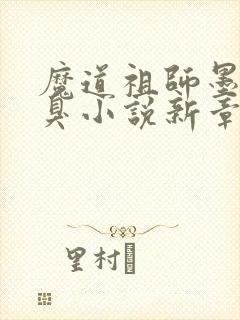 魔道祖師墨
臭小說新章
里村